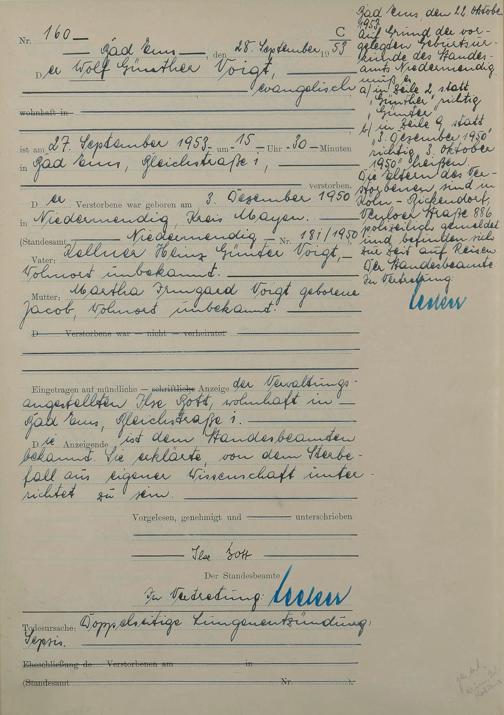 Nr. 160
C
Bad Ems, den 28. September 1953
Der Wolf Günther Voigt,
evangelisch
wohnhaft in
ist am 27. September 1953 um 15 Uhr 30 Minuten
in Bad Ems, Bleichstraße 1,
verstorben.
Der Verstorbene war geboren am 3. Dezember 1950
in Niedermendig, Kreis Mayen.
(Standesamt Niedermendig Nr. 181/1950
Vater: Kellner Heinz Günter Voigt,
Wohnort unbekannt.
Mutter: Martha Irmgard Voigt geborene
Jacob, Wohnort unbekannt.
D Verstorbene war — nicht — verheiratet
Eingetragen auf mündliche — schriftliche Anzeige der Verwaltungs-
angestellten Ilse Bott, wohnhaft in
Bad Ems, Bleichstraße 1.
Die Anzeigende ist dem Standesbeamten
bekannt. Sie erklärte, von dem Sterbe-
fall aus eigener Wissenschaft unter-
richtet zu sein.
Vorgelesen, genehmigt und unterschrieben
Ilse Bott
Der Standesbeamte
In Vertretung:
Todesursache: Doppelseitige Lungenentzündung;
Sepsis.
Eheschließung de Verstorbenen am in
(Standesamt Nr.
Bad Ems, den 22. Oktober
1953
Auf Grund der vor-
gelegten Geburtsur-
kunde des Standes-
amts Niedermendig
muß es
a) in Zeile 2, statt
"Günther" richtig
"Günter"
b) in Zeile 9, statt
"3. Dezember 1950"
richtig "3. Oktober
1950" heißen.
Die Eltern des Ver-
storbenen sind in
Köln-Bickendorf,
Venloer Straße 886
polizeilich gemeldet
und befinden sich
zur Zeit auf Reisen
Der Standesbeamte
In Vertretung